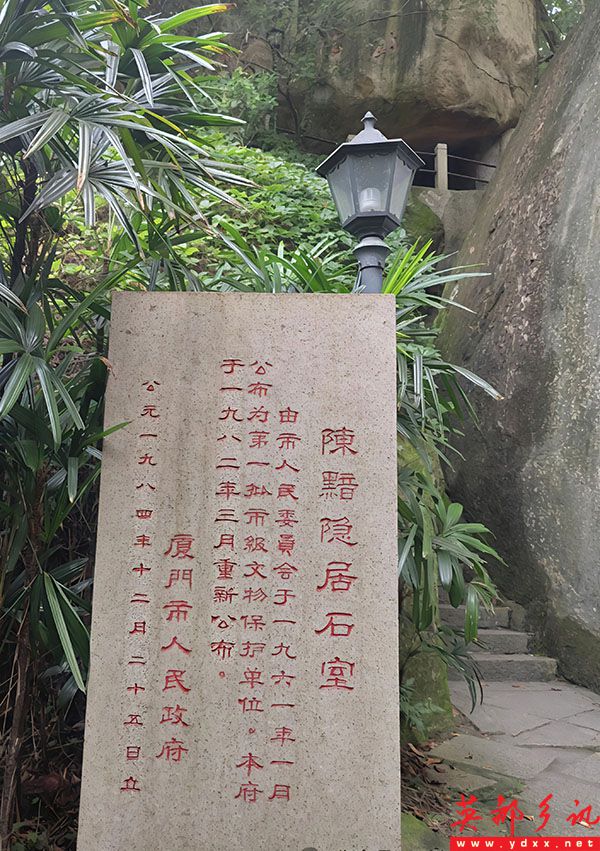 陳黯隐居石室
由市人民委員会于一九六一年一月
公布为第一批市級文物保护单位。本府
于一九八二年三月重新公布。
厦門市人民政府
公元一九八四年十二月二十五日立
英都乡讯
www.ydxx.net